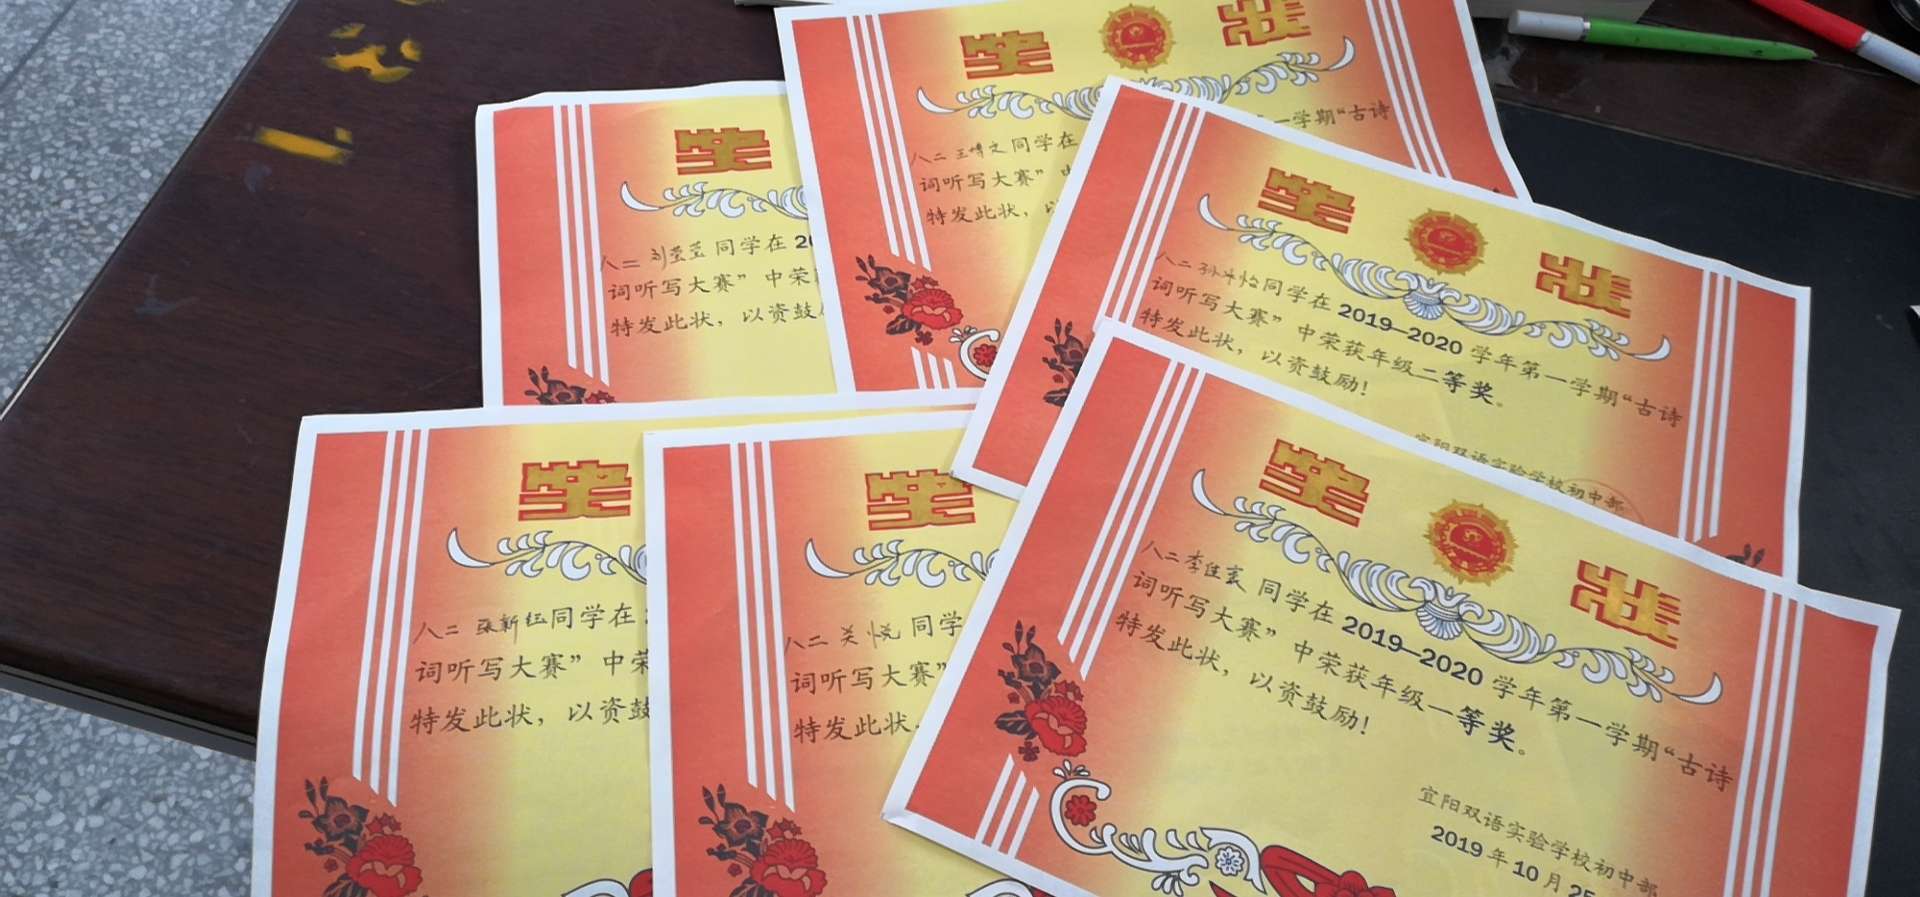 奖
八二 刘莹莹 同学在 20
词听写大赛”中荣
特发此状，以资鼓
奖 状
八二 王博文 同学在
一学期“古诗
词听写大赛”中
特发此状，以
奖 状
八二 孙 怡同学在 2019—2020 学年第一学期“古诗
词听写大赛”中荣获年级二等奖。
特发此状，以资鼓励！
宜阳双语实验学校初中部
奖
八二 张新钰同学在
词听写大赛”中荣
特发此状，以资鼓
奖
八二 关悦 同学
词听写大赛”
特发此状
奖 状
八二 李佳 同学在 2019—2020 学年第一学期“古诗
词听写大赛”中荣获年级一等奖。
特发此状，以资鼓励！
宜阳双语实验学校初中部
2019 年 10 月 25